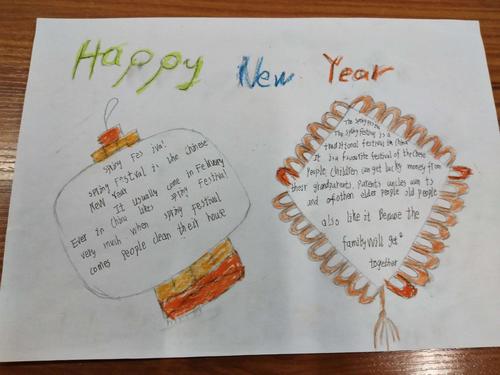 Happy New Year
Spring Festival
Spring Festival is the Chinese
New Year. It usually come in February
Ever in China likes spring Festival
very much when spring Festival
comes people clean their house
The spring Festival
The spring Festival is a
traditional festival in China
It is a favourite festival of the Chinese
People. Children can get lucky money from
their grandparents. Parents uncles
and of other elder people old people
also like it Because the
family will get
together